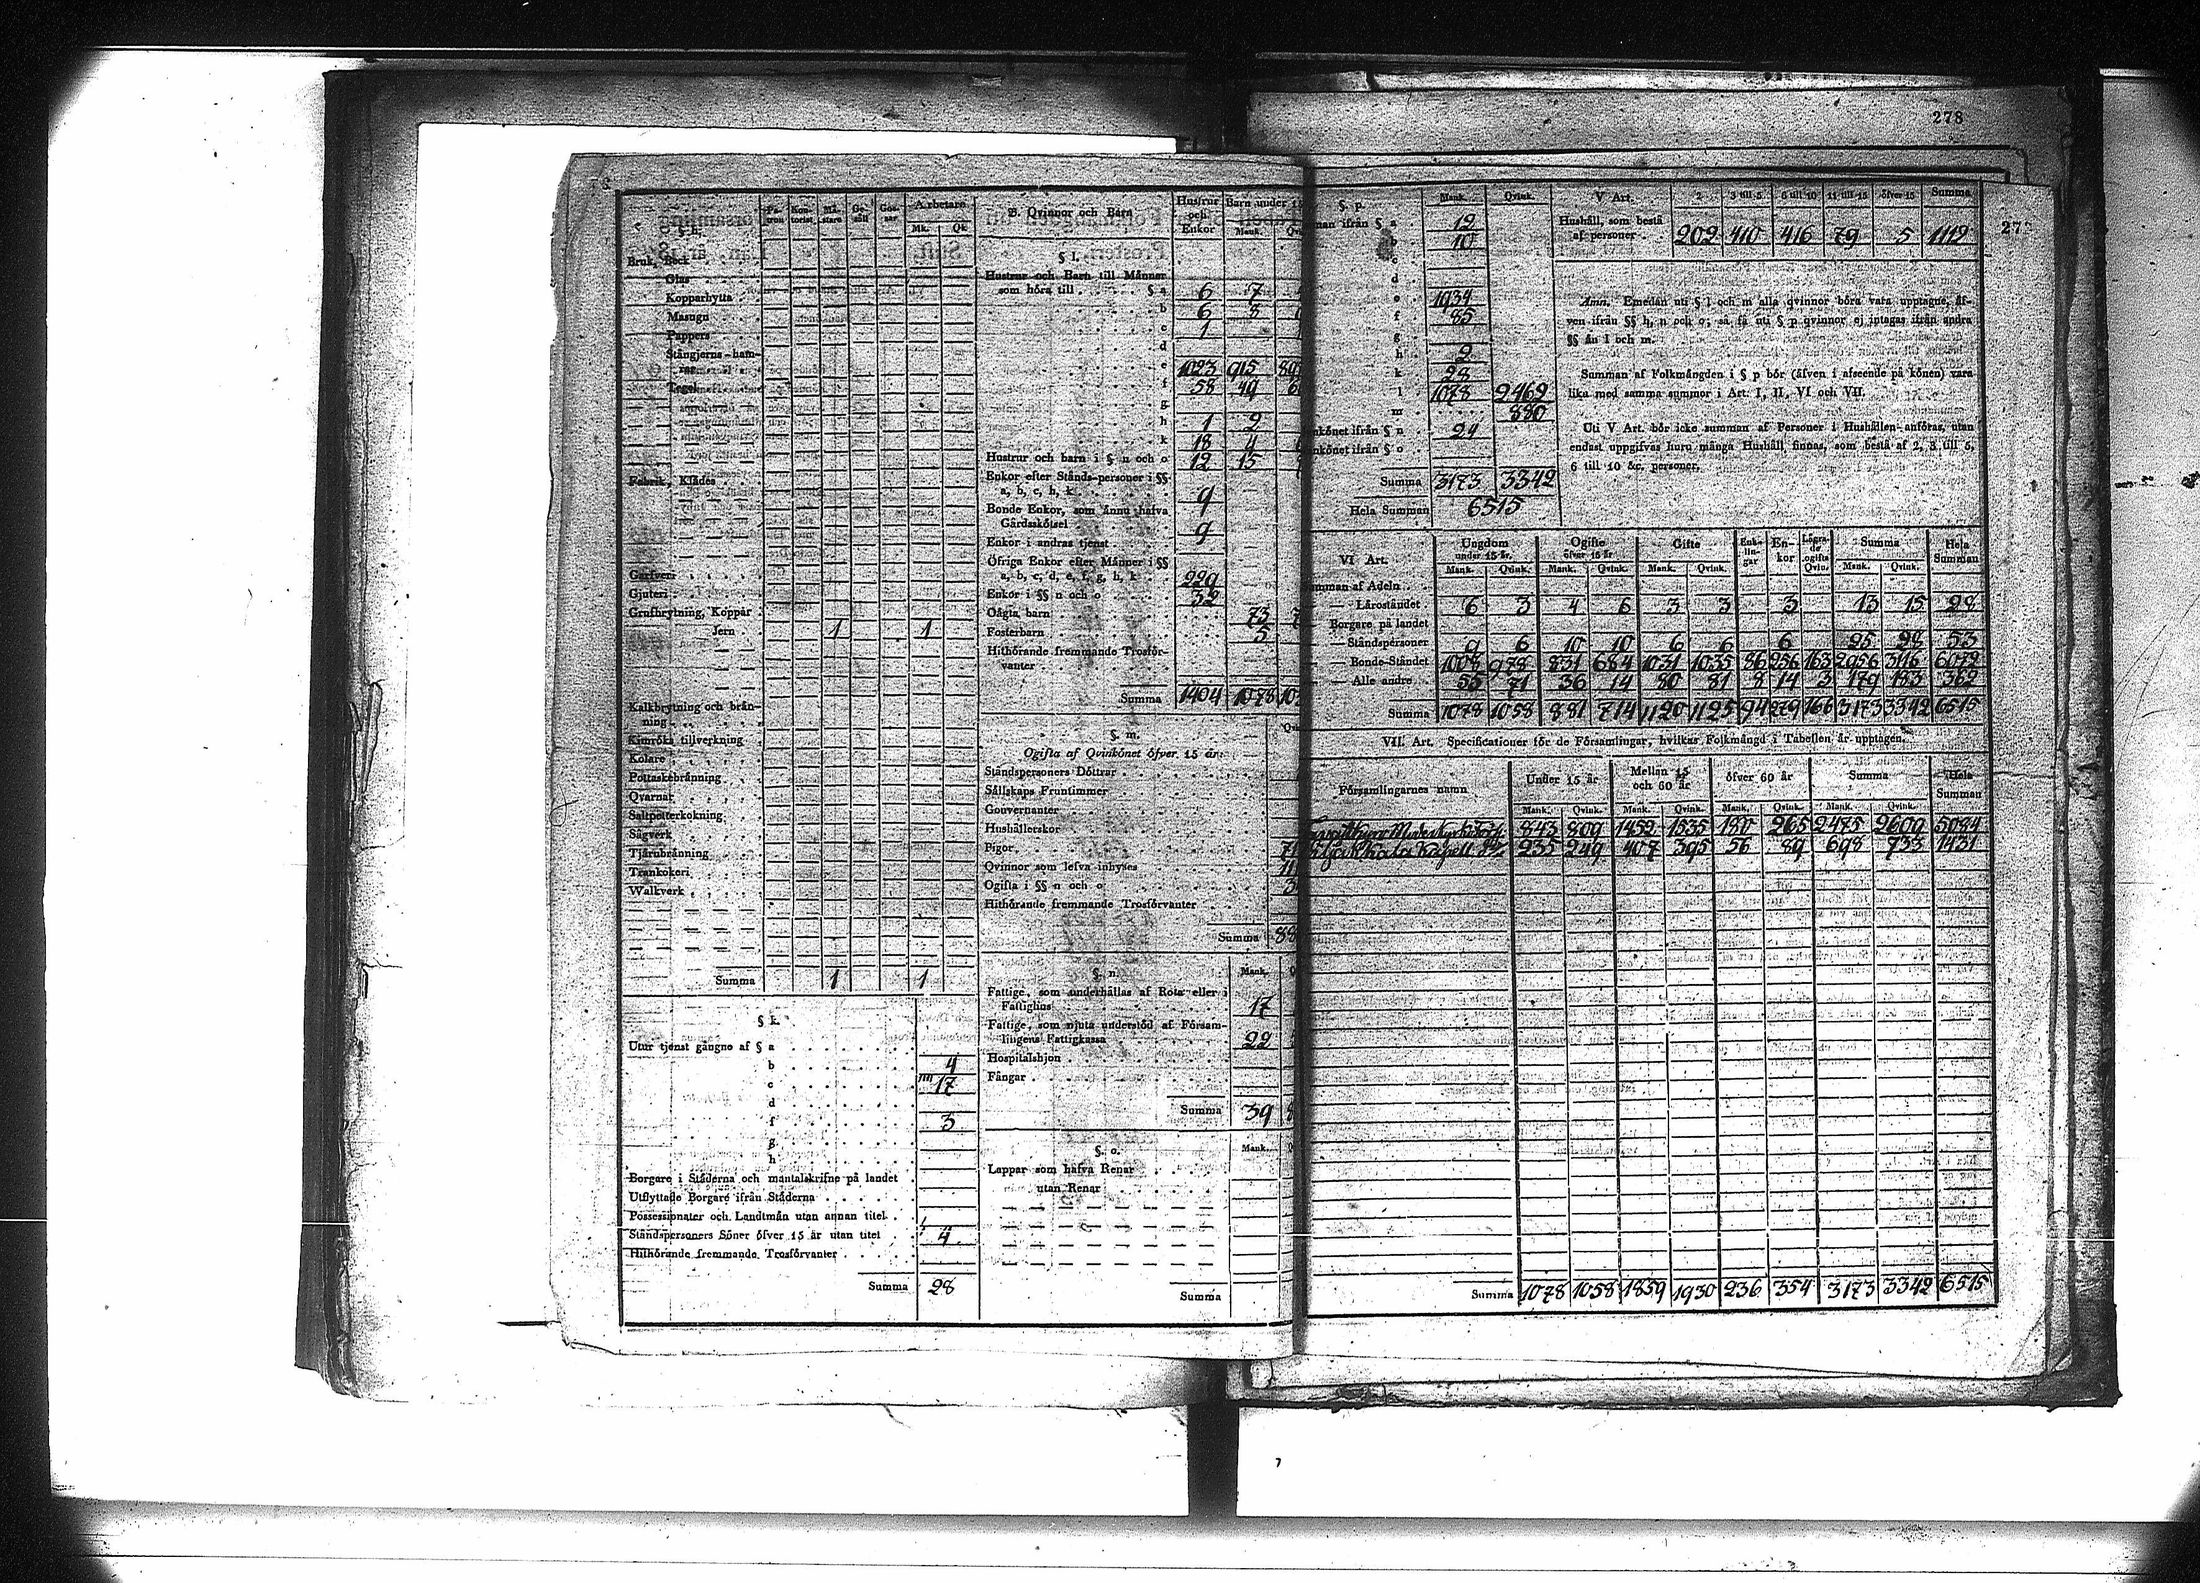 278
§ h.
Patron Kontorist Mästare Gesäll Gossar Arbetare
Mk. Qk.
Bruk, Beck
Glas
Kopparhytta
Masugn
Pappers
Stångjerns-ham-
Tegel
Fabrik, Klädes
Garfveri
Gjuteri
Grufbrytning, Koppar
Jern 1 1
Kalkbrytning och brän-
ning
Kimröks tillverkning
Kolare
Pottaskebränning
Qvarnar
Saltpetterkokning
Sågverk
Tjärubränning
Trankokeri
Walkverk
Summa 1 1
§ k.
Utur tjenst gångne af § a
b 4
c 17
d
f 3
g
h
Borgare i Städerna och mantalskrifne på landet
Utflyttade Borgare ifrån Städerna
Possessionater och Landtmän utan annan titel
Ståndspersoners Söner öfver 15 år utan titel 4
Hithörande fremmande Trosförvanter
Summa 28
B. Qvinnor och Barn
Hustrur och Enkor Barn under
Mank.
§ l.
Hustrur och Barn till Männer
som höra till § a 6 7
b 6 8
c 1
d
e 1023 915
f 58 49
g
h 1 2
k 18 4
Hustrur och barn i § n och o 12 15
Enkor efter Stånds-personer i §§
a, b, c, h, k 9
Bonde Enkor, som ännu hafva
Gårdsskötsel 9
Enkor i andras tjenst
Öfriga Enkor efter Männer i §§
a, b, c, d, e, f, g, h, k 229
Enkor i §§ n och o 32
Oägta barn 73
Fosterbarn 5
Hithörande fremmande Trosför-
vanter
Summa 1404 1078
§. m.
Ogifta af Qvinkönet öfver 15 år:
Ståndspersoners Döttrar
Sällskaps Fruntimmer
Gouvernanter
Hushållerskor
Pigor
Qvinnor som lefva inhyses
Ogifta i §§ n och o
Hithörande fremmande Trosförvanter
Summa 88
§. n. Mank.
Fattige, som underhållas af Rota eller i
Fattighus 17
Fattige, som njuta understöd af Försam-
lingens Fattigkassa 22
Hospitalshjon
Fångar
Summa 39
§. o. Mank.
Lappar som hafva Renar
utan Renar
Summa
§ p. Mank. Qvink.
ifrån § a 12
b 10
c
d
e 1934
f 85
g
h 2
k 28
l 1078 2462
m 880
könet ifrån § n 24
könet ifrån § o
Summa 3173 3342
Hela Summan 6515
V Art. 2 3 till 5 6 till 10 11 till 15 öfver 15 Summa
Hushåll, som bestå
af personer 202 410 416 79 5 1112
Anm. Emedan uti § l och m alla qvinnor böra vara upptagne, äf-
ven ifrån §§ h, n och o; så få uti § p qvinnor ej intagas ifrån andra
§§ än l och m.
Summan af Folkmängden i § p bör (äfven i afseende på könen) vara
lika med samma summor i Art. I, II, VI och VII.
Uti V Art. bör icke summan af Personer i Hushållen anföras, utan
endast uppgifvas huru många Hushåll finnas, som bestå af 2, 3 till 5,
6 till 10 &c. personer.
VI Art. Ungdom under 15 år. Ogifte öfver 15 år Gifte Enklingar Enkor Lägrade ogifta Qvin. Summa Hela Summan
Mank. Qvink. Mank. Qvink. Mank. Qvink. Mank. Qvink.
Summan af Adeln
— Läroståndet 6 3 4 6 3 3 3 13 15 28
Borgare på landet
— Ståndspersoner 9 6 10 10 6 6 6 25 28 53
— Bonde-Ståndet 1008 978 831 684 1031 1035 86 256 163 2956 3116 6072
— Alle andre 55 71 36 14 80 81 8 14 3 179 183 362
Summa 1078 1058 881 714 1120 1125 94 279 166 3173 3342 6515
VII. Art. Specificationer för de Församlingar, hvilkas Folkmängd i Tabellen är upptagen.
Församlingarnes namn Under 15 år Mellan 15 och 60 år öfver 60 år Summa Hela Summan
Mank. Qvink. Mank. Qvink. Mank. Qvink. Mank. Qvink.
843 809 1452 1535 180 265 2475 2609 5084
Kapell 235 249 407 395 56 89 698 733 1431
Summa 1078 1058 1859 1930 236 354 3173 3342 6515